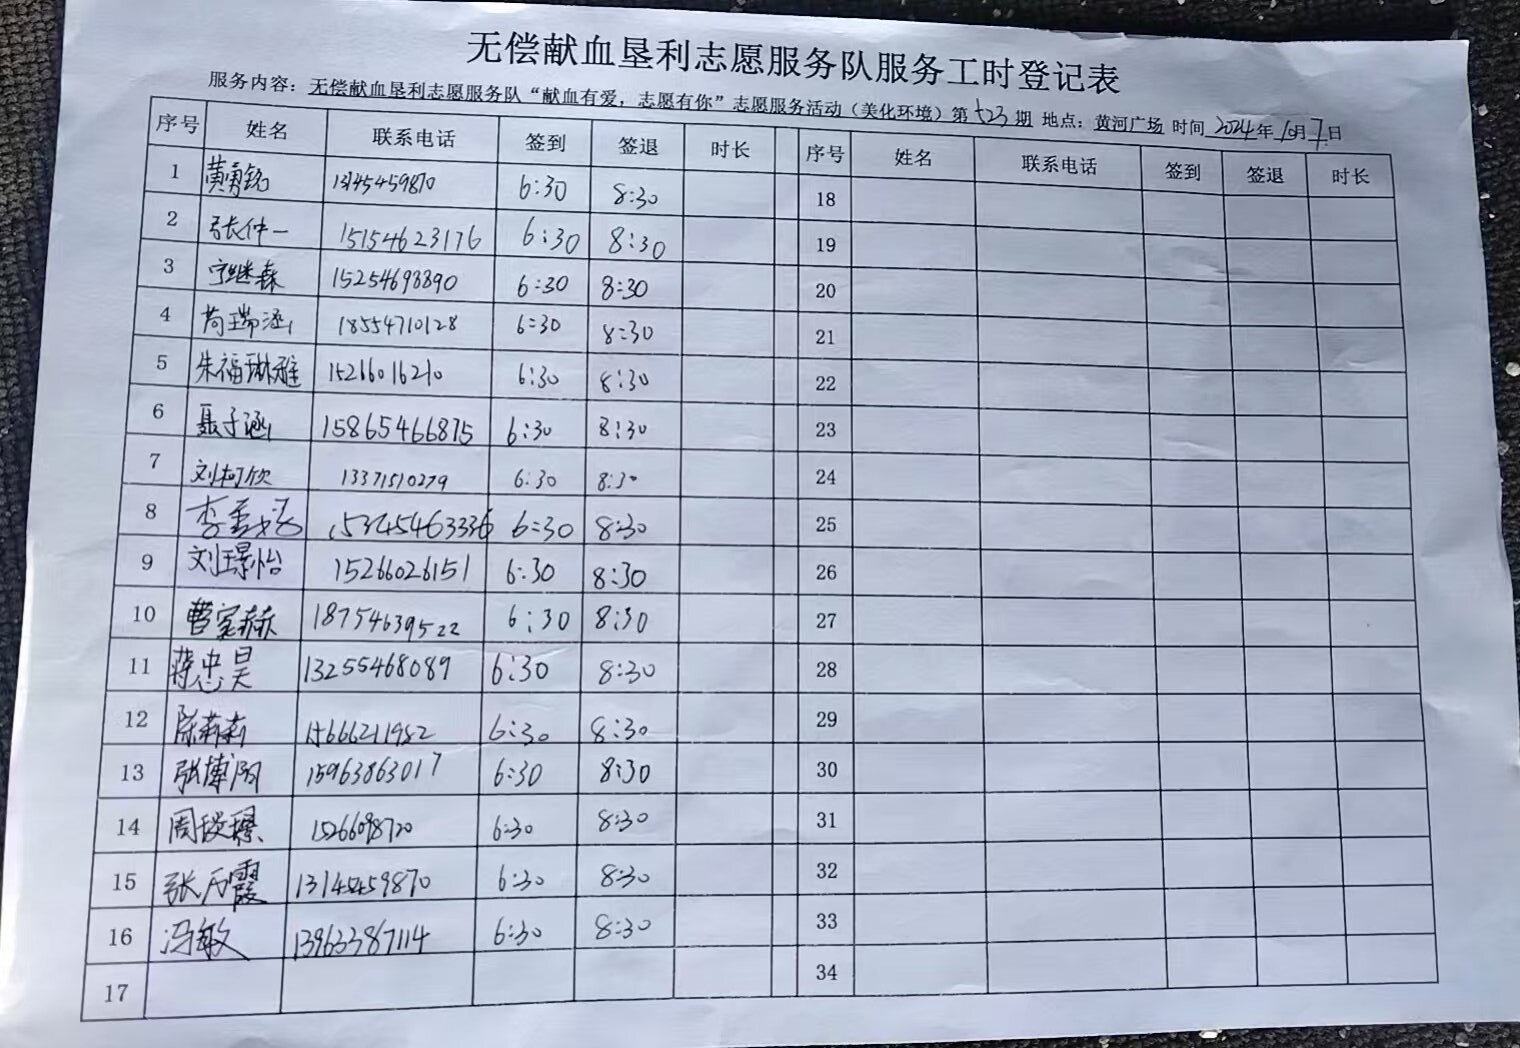 无偿献血垦利志愿服务队服务工时登记表
服务内容：无偿献血垦利志愿服务队“献血有爱，志愿有你”志愿服务活动（美化环境）第523期 地点：黄河广场 时间 2024年10月7日
序号 姓名 联系电话 签到 签退 时长 序号 姓名 联系电话 签到 签退 时长
1 黄勇铭 13145459870 6:30 8:30 18
2 张仲一 15154623176 6:30 8:30 19
3 宁继森 15254698890 6:30 8:30 20
4 苟瑞涵 18554710128 6:30 8:30 21
5 朱福琳雅 15266016210 6:30 8:30 22
6 聂子涵 15865466875 6:30 8:30 23
7 刘柯欣 13371510279 6:30 8:30 24
8 李孟 15345463336 6:30 8:30 25
9 刘璟怡 15266026151 6:30 8:30 26
10 曹家赫 18754639522 6:30 8:30 27
11 蒋忠昊 13255468089 6:30 8:30 28
12 陈莉莉 15666211952 6:30 8:30 29
13 张博阳 15963863017 6:30 8:30 30
14 周 6:30 8:30 31
15 张万霞 13145459870 6:30 8:30 32
16 冯敏 13963387114 6:30 8:30 33
17 34